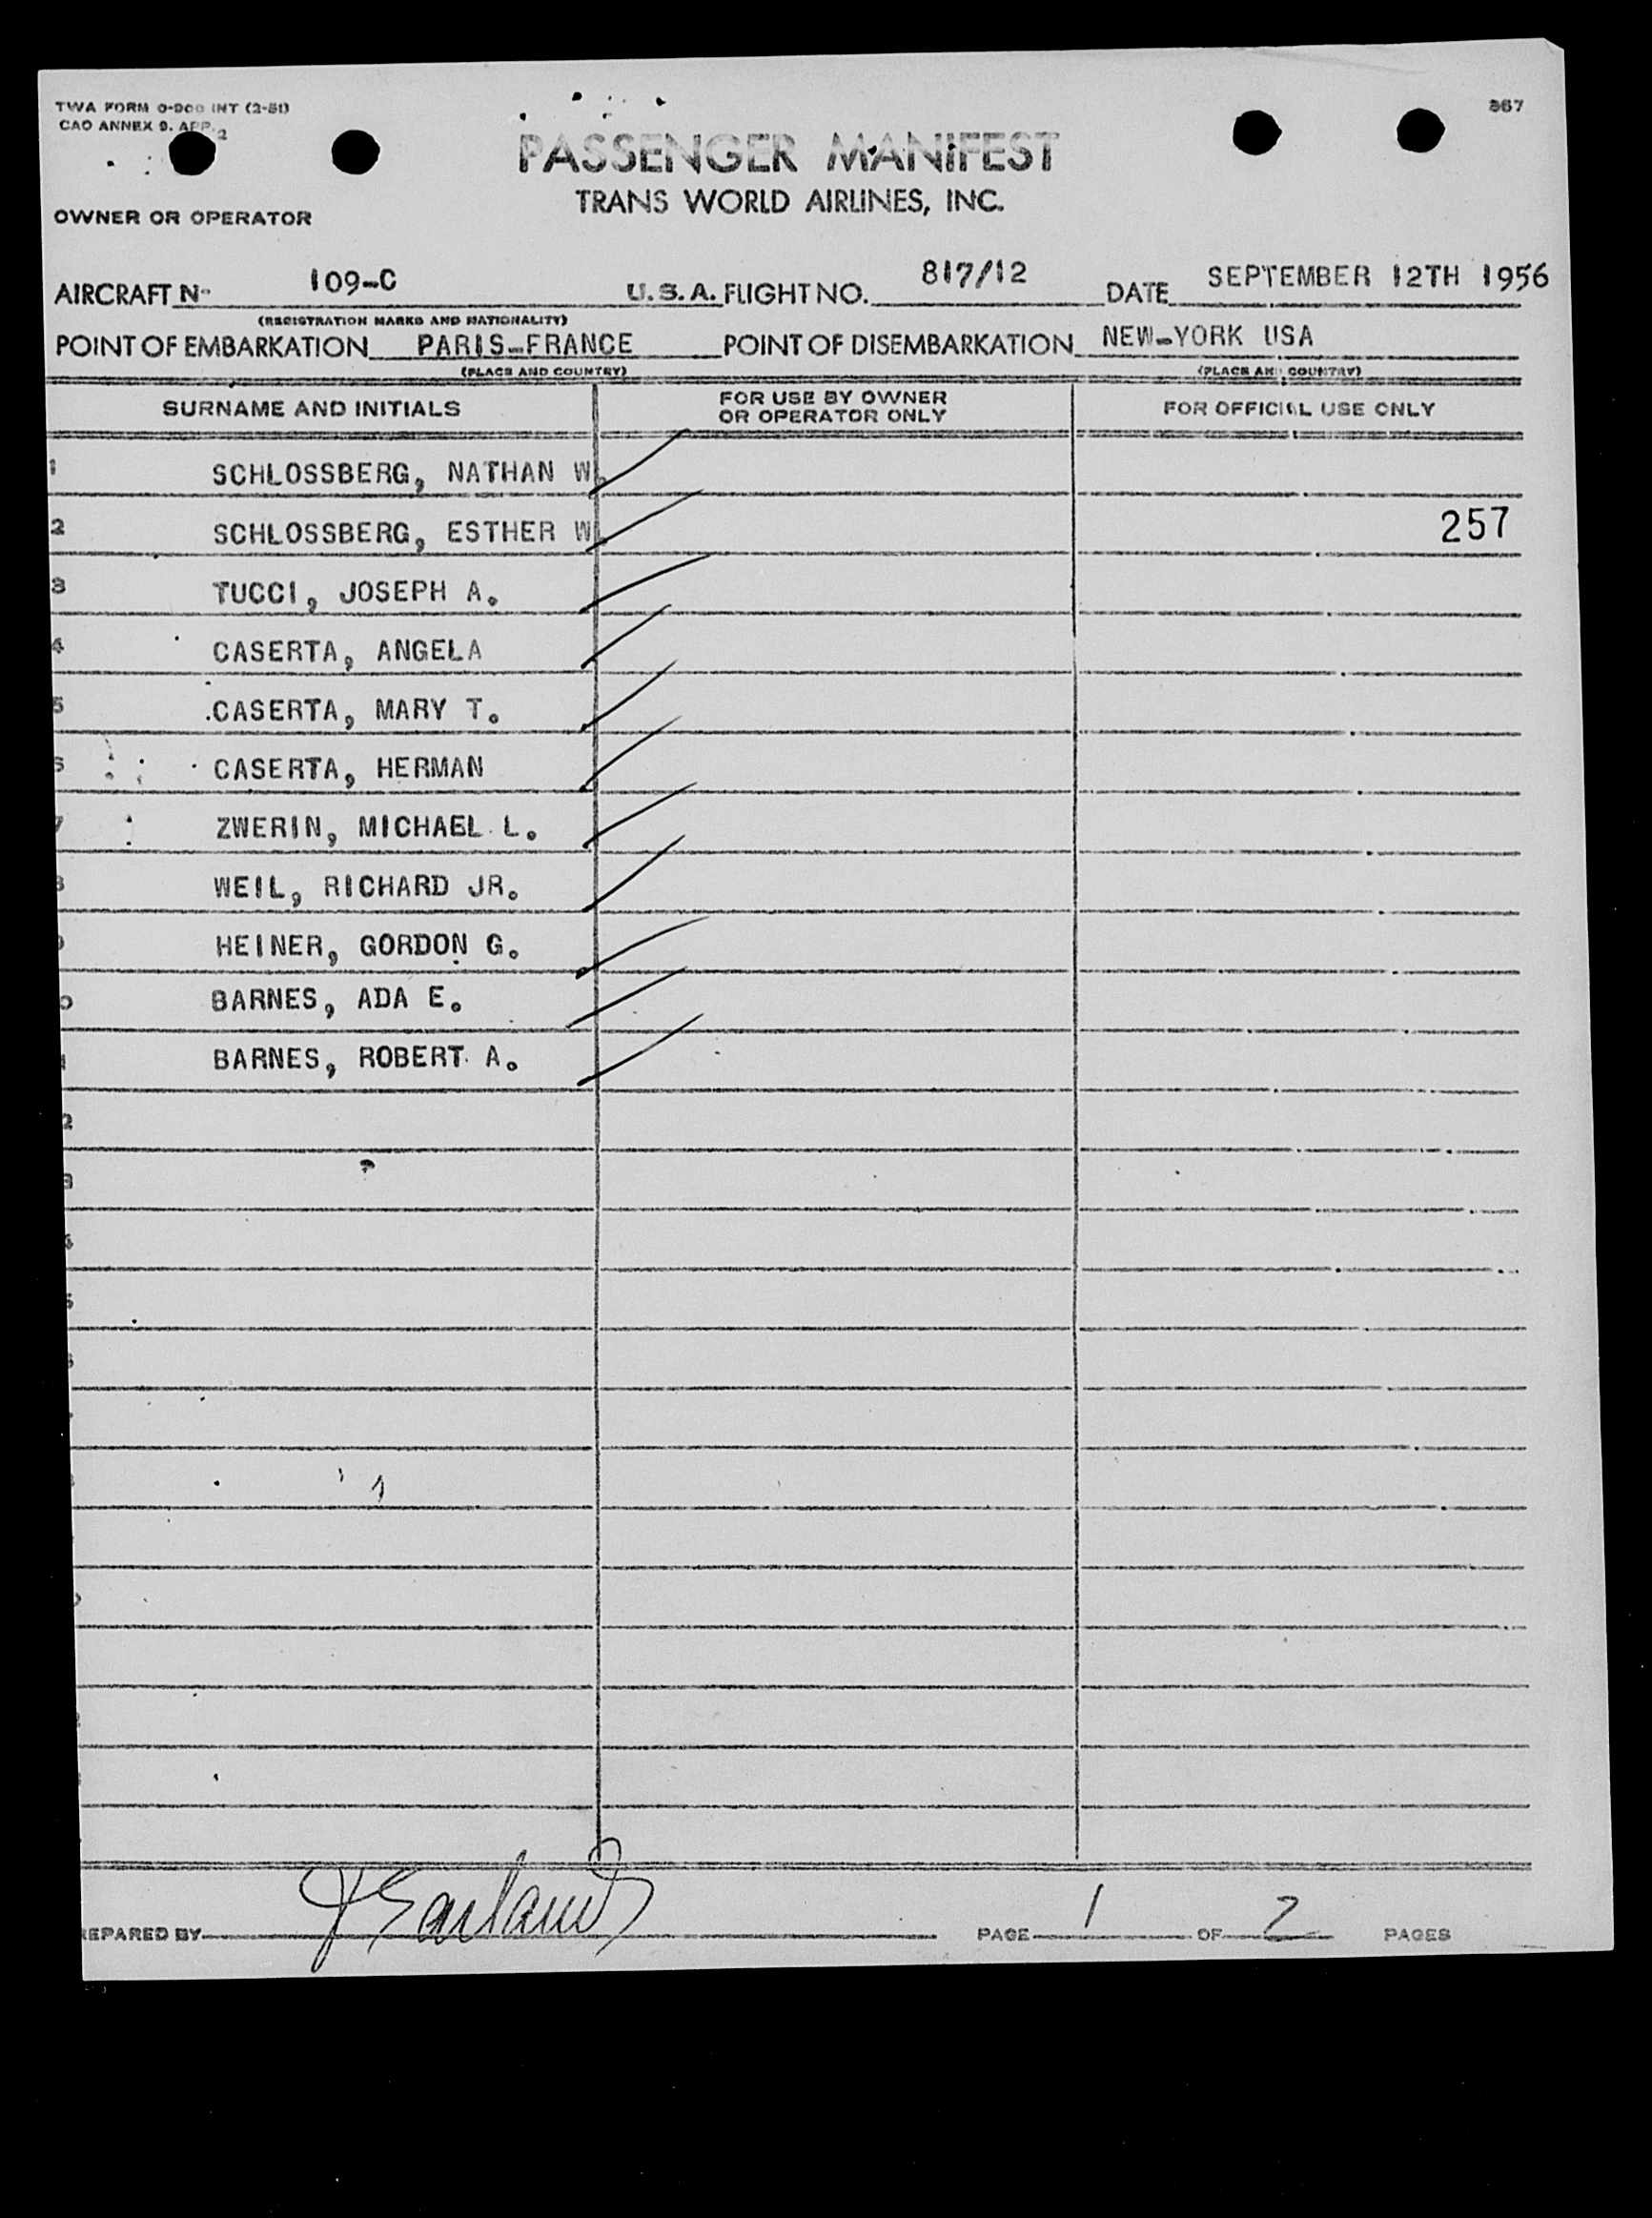 TWA FORM O-900 INT (2-51)
CAO ANNEX 9. APP. 2
367
PASSENGER MANIFEST
TRANS WORLD AIRLINES, INC.
OWNER OR OPERATOR
AIRCRAFT N- 109-C U.S.A. FLIGHT NO. 817/12 DATE SEPTEMBER 12TH 1956
(REGISTRATION MARKS AND NATIONALITY)
POINT OF EMBARKATION PARIS-FRANCE POINT OF DISEMBARKATION NEW-YORK USA
(PLACE AND COUNTRY) (PLACE AND COUNTRY)
SURNAME AND INITIALS FOR USE BY OWNER OR OPERATOR ONLY FOR OFFICIAL USE ONLY
1 SCHLOSSBERG, NATHAN W.
2 SCHLOSSBERG, ESTHER W 257
3 TUCCI, JOSEPH A.
4 CASERTA, ANGELA
5 CASERTA, MARY T.
6 CASERTA, HERMAN
7 ZWERIN, MICHAEL L.
8 WEIL, RICHARD JR.
9 HEINER, GORDON G.
0 BARNES, ADA E.
1 BARNES, ROBERT A.
2
3
4
5
6
REPARED BY PAGE 1 OF 2 PAGES